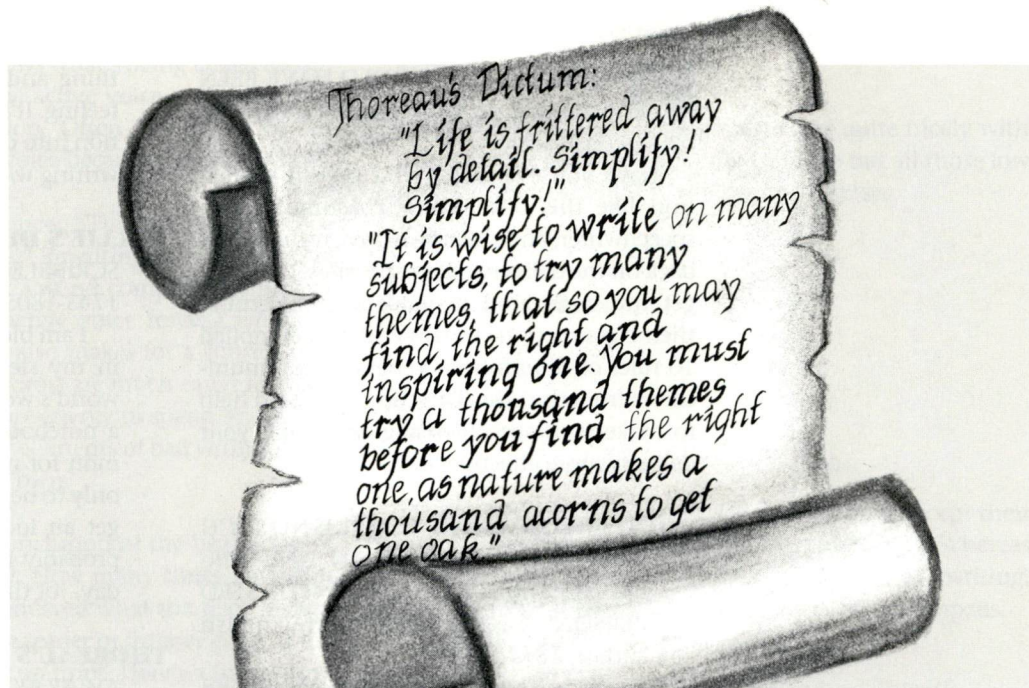 Thoreau's Dictum:
"Life is frittered away
by detail. Simplify!
Simplify!"
"It is wise to write on many
subjects, to try many
themes, that so you may
find the right and
inspiring one. You must
try a thousand themes
before you find the right
one, as nature makes a
thousand acorns to get
one oak."